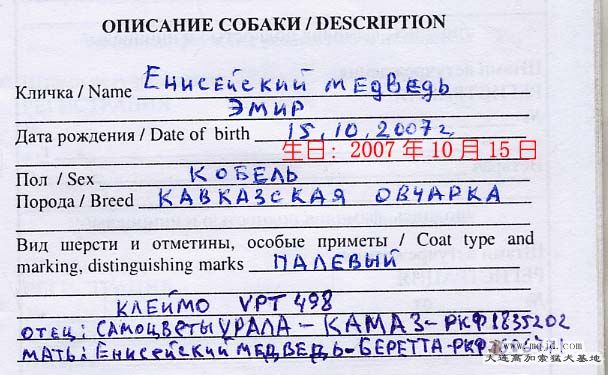 ОПИСАНИЕ СОБАКИ / DESCRIPTION
Кличка / Name Енисейский медведь
Эмир
Дата рождения / Date of birth 15.10.2007г
生日：2007年10月15日
Пол / Sex КОБЕЛЬ
Порода / Breed КАВКАЗСКАЯ ОВЧАРКА
Вид шерсти и отметины, особые приметы / Coat type and
marking, distinguishing marks ПАЛЕВЫЙ
КЛЕЙМО УРТ 498
ОТЕЦ: САМОЦВЕТЫ УРАЛА - КАМАЗ - РКФ 1835202
МАТЬ: ЕНИСЕЙСКИЙ МЕДВЕДЬ - БЕРЕТТА - РКФ
大连高加索猛犬基地